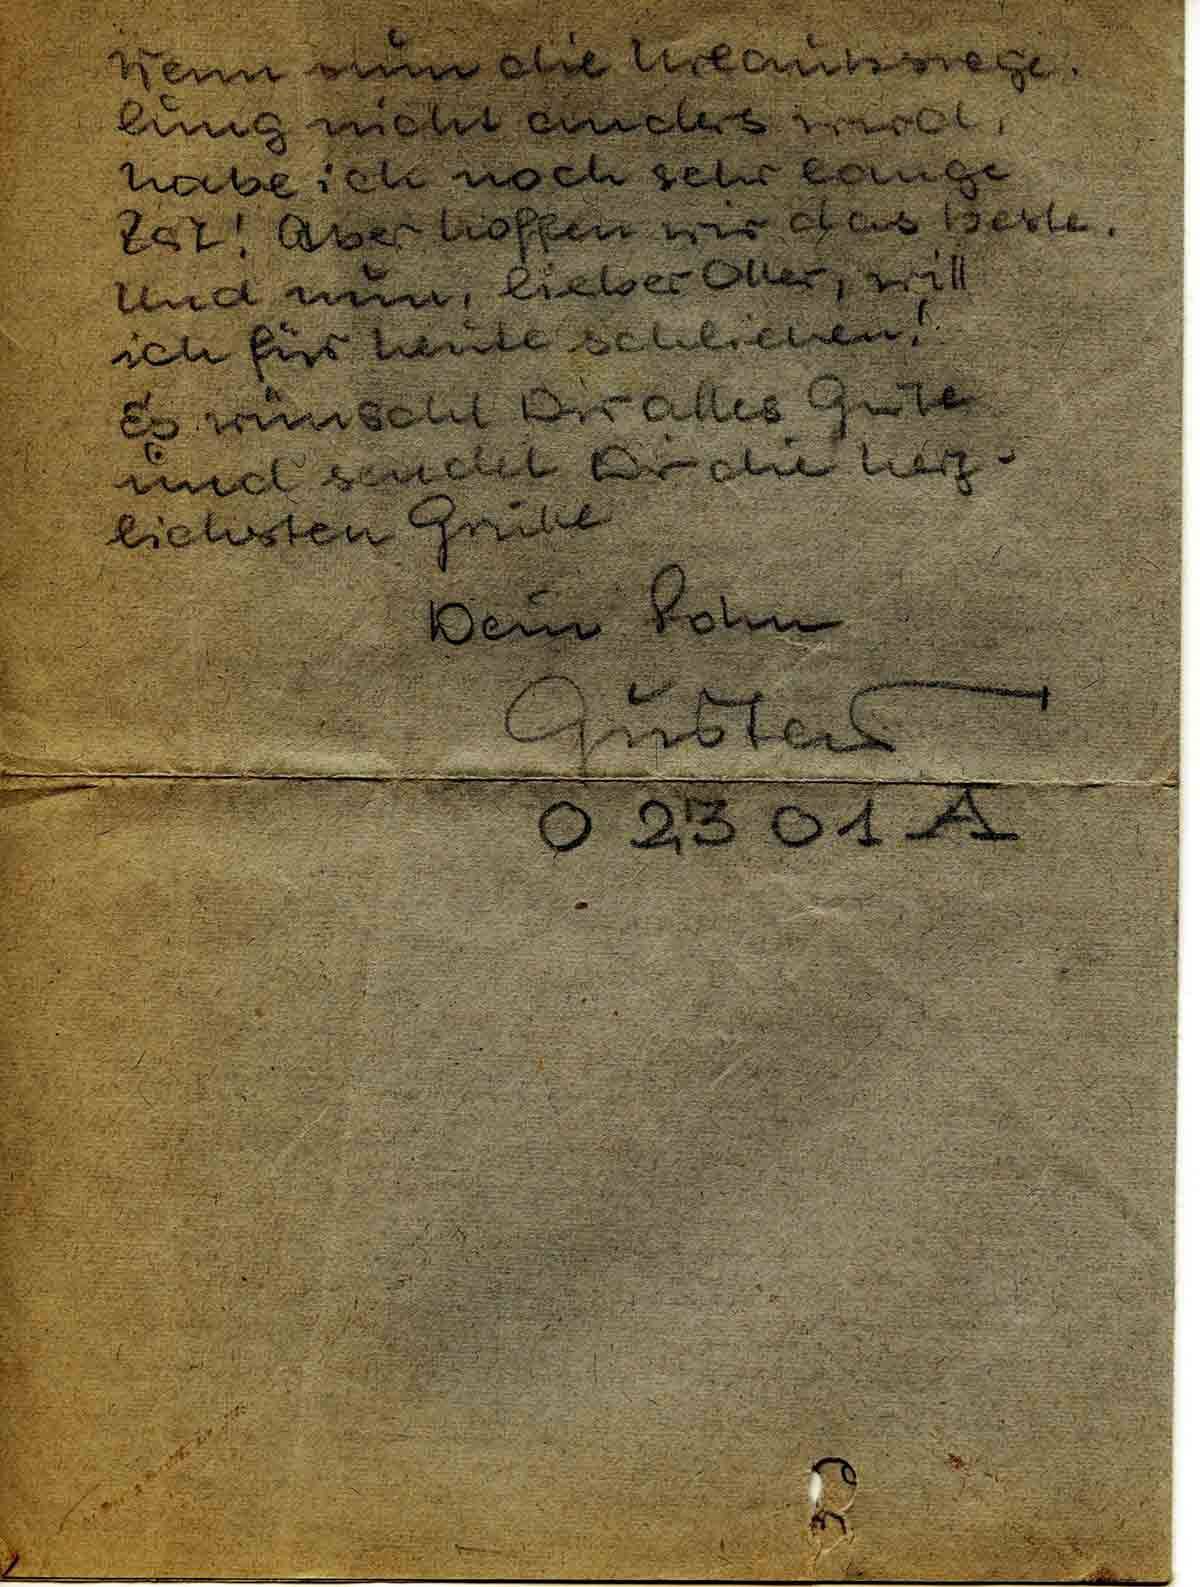 Wenn nun die Urlaubsrege-
lung nicht anders wird,
habe ich noch sehr lange
Zeit! Aber hoffen wir das beste.
Und nun, lieber Oller, will
ich für heute schließen!
Es wünscht Dir alles Gute
und sendet Dir die herz-
lichsten Grüße
Dein Sohn
Gustav
0 23 01 A